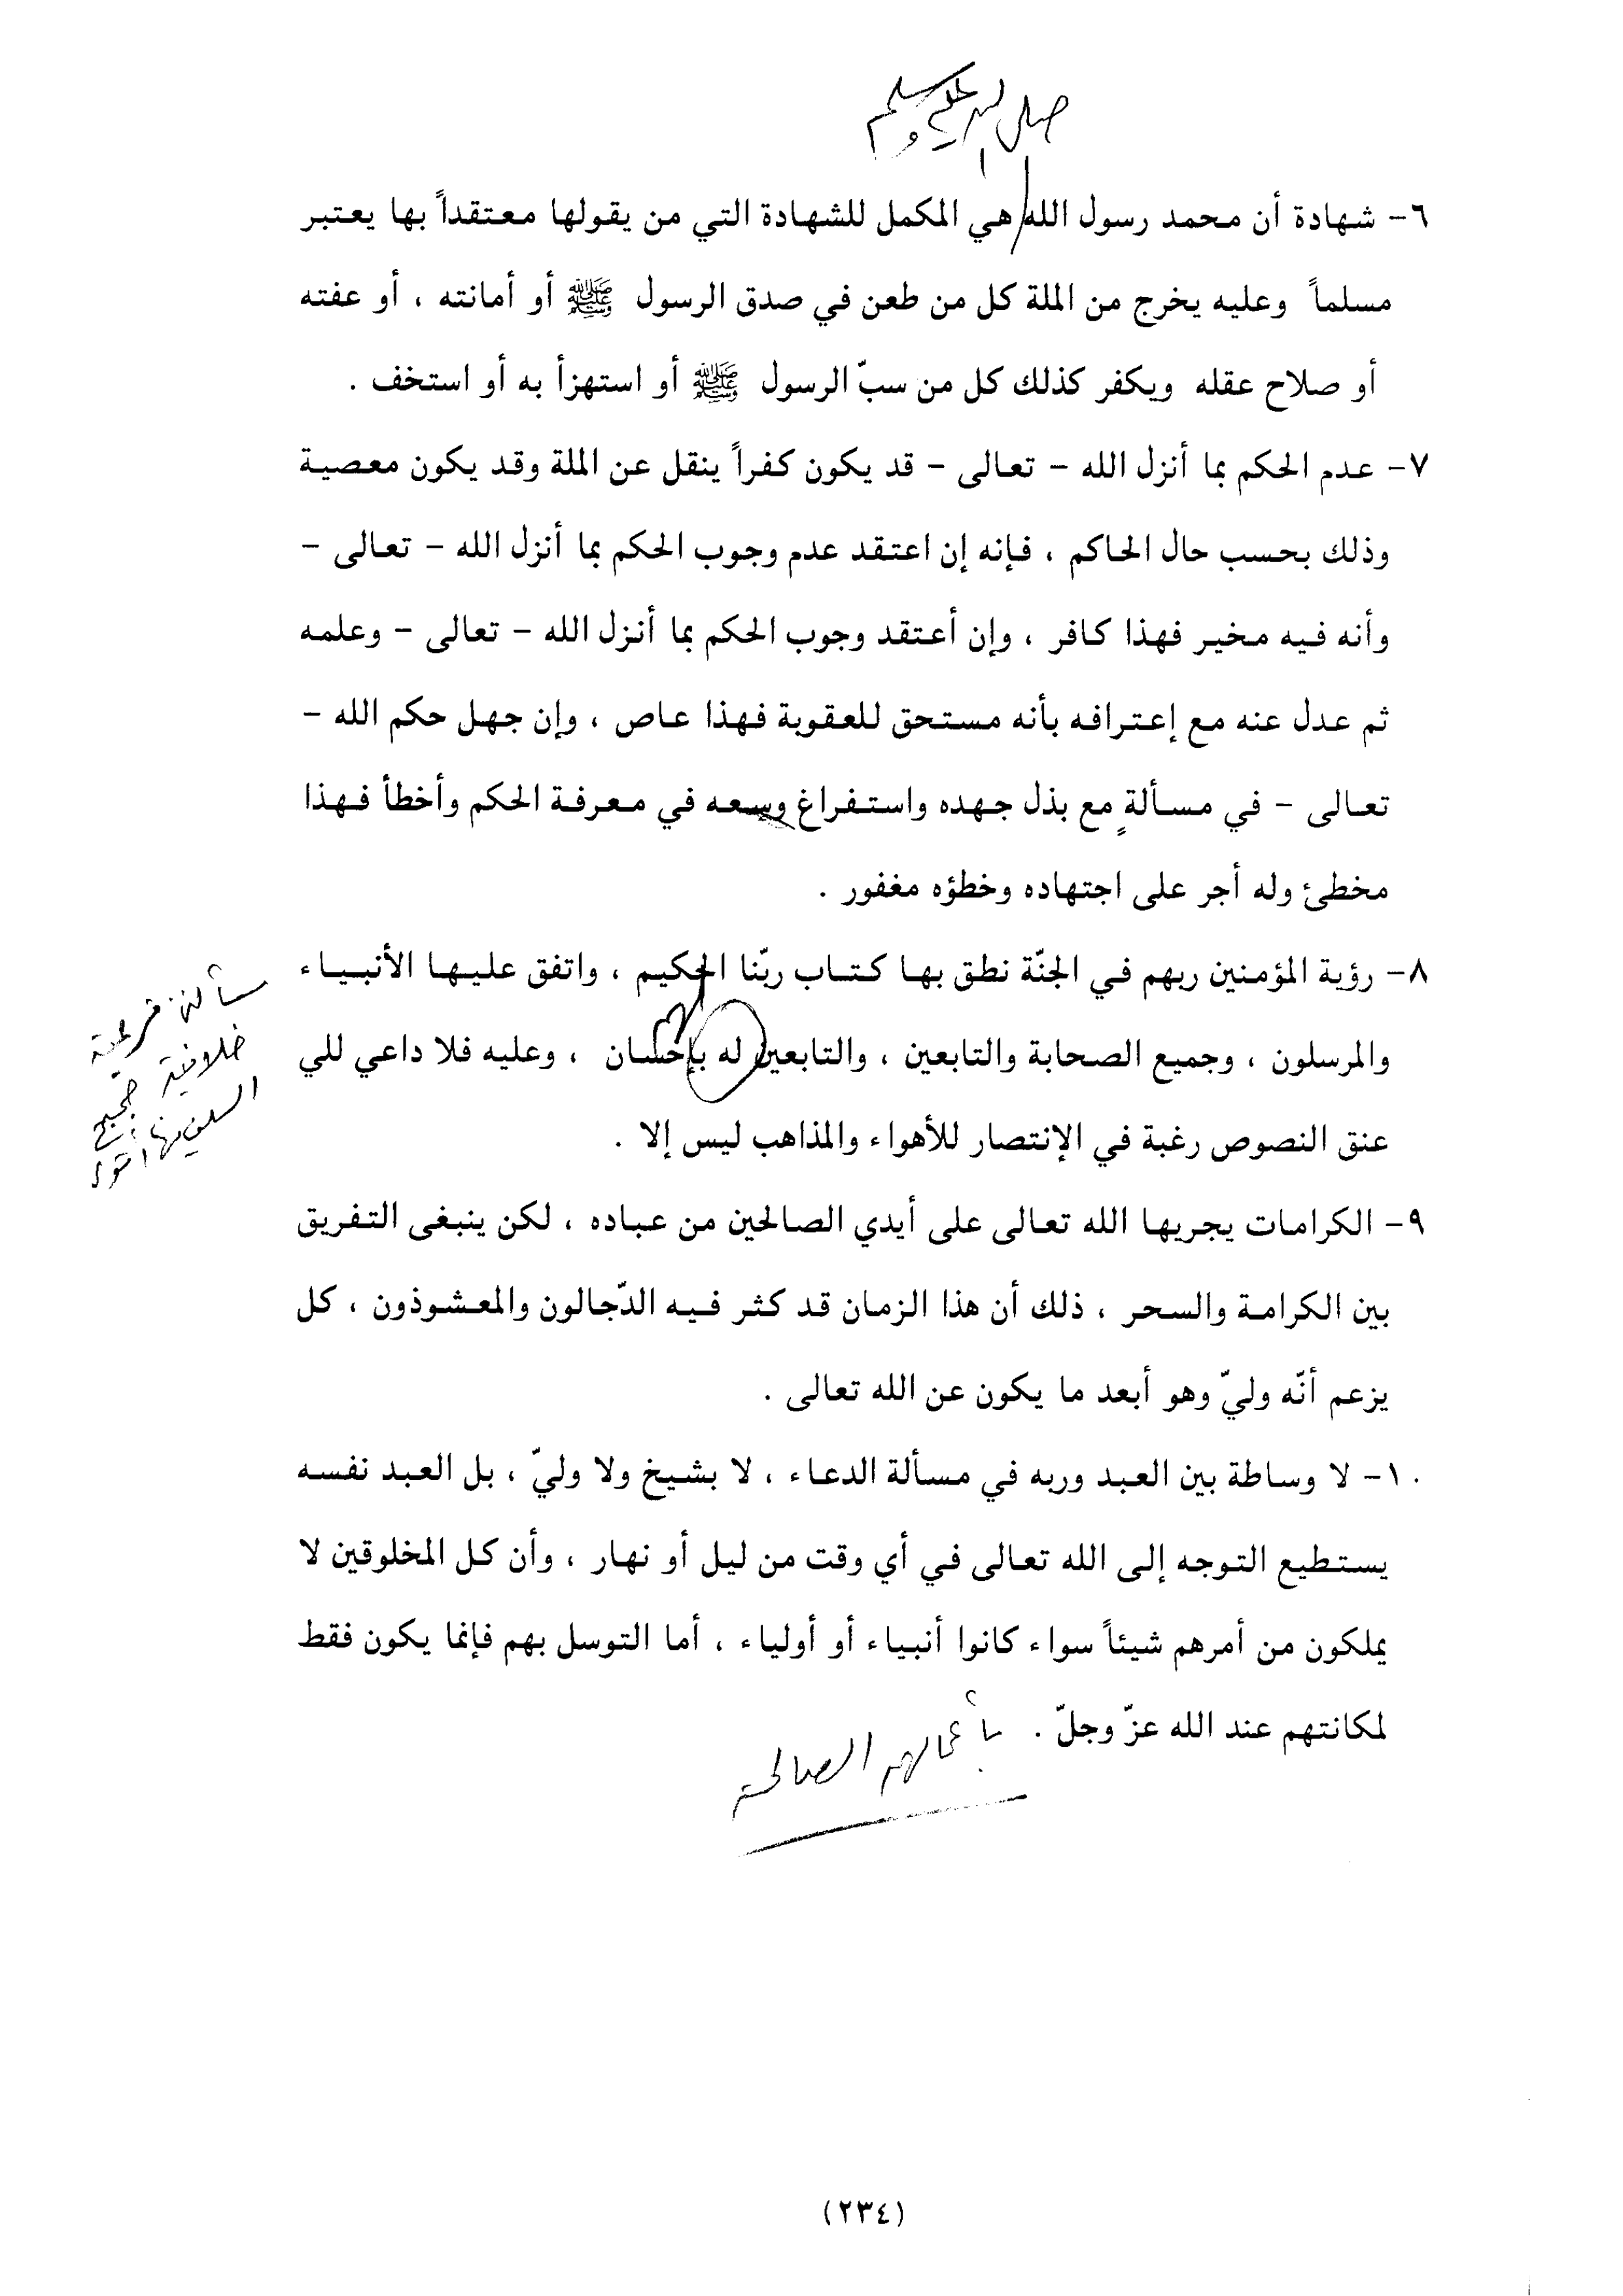 صلى الله عليه وسلم
٦- شهادة أن محمد رسول الله هي المكمل للشهادة التي من يقولها معتقداً بها يعتبر
مسلماً وعليه يخرج من الملة كل من طعن في صدق الرسول ﷺ أو أمانته ، أو عفته
أو صلاح عقله ويكفر كذلك كل من سبّ الرسول ﷺ أو استهزأ به أو استخف .
٧- عدم الحكم بما أنزل الله - تعالى - قد يكون كفراً ينقل عن الملة وقد يكون معصية
وذلك بحسب حال الحاكم ، فإنه إن اعتقد عدم وجوب الحكم بما أنزل الله - تعالى -
وأنه فيه مخير فهذا كافر ، وإن أعتقد وجوب الحكم بما أنزل الله - تعالى - وعلمه
ثم عدل عنه مع إعترافه بأنه مستحق للعقوبة فهذا عاص ، وإن جهل حكم الله -
تعالى - في مسألةٍ مع بذل جهده واستفراغ وسعه في معرفة الحكم وأخطأ فهذا
مخطئ وله أجر على اجتهاده وخطؤه مغفور .
٨- رؤية المؤمنين ربهم في الجنّة نطق بها كتاب ربّنا الحكيم ، واتفق عليها الأنبياء
والمرسلون ، وجميع الصحابة والتابعين ، والتابعين له بإحسان ، وعليه فلا داعي للي
عنق النصوص رغبة في الإنتصار للأهواء والمذاهب ليس إلا .
٩- الكرامات يجريها الله تعالى على أيدي الصالحين من عباده ، لكن ينبغى التفريق
بين الكرامة والسحر ، ذلك أن هذا الزمان قد كثر فيه الدّجالون والمعشوذون ، كل
يزعم أنّه وليّ وهو أبعد ما يكون عن الله تعالى .
١٠- لا وساطة بين العبد وربه في مسألة الدعاء ، لا بشيخ ولا وليّ ، بل العبد نفسه
يستطيع التوجه إلى الله تعالى في أي وقت من ليل أو نهار ، وأن كل المخلوقين لا
يملكون من أمرهم شيئاً سواء كانوا أنبياء أو أولياء ، أما التوسل بهم فإنما يكون فقط
لمكانتهم عند الله عزّ وجلّ .
بأعمالهم الصالحة
مسألة فرعية
خلافية
(٢٣٤)